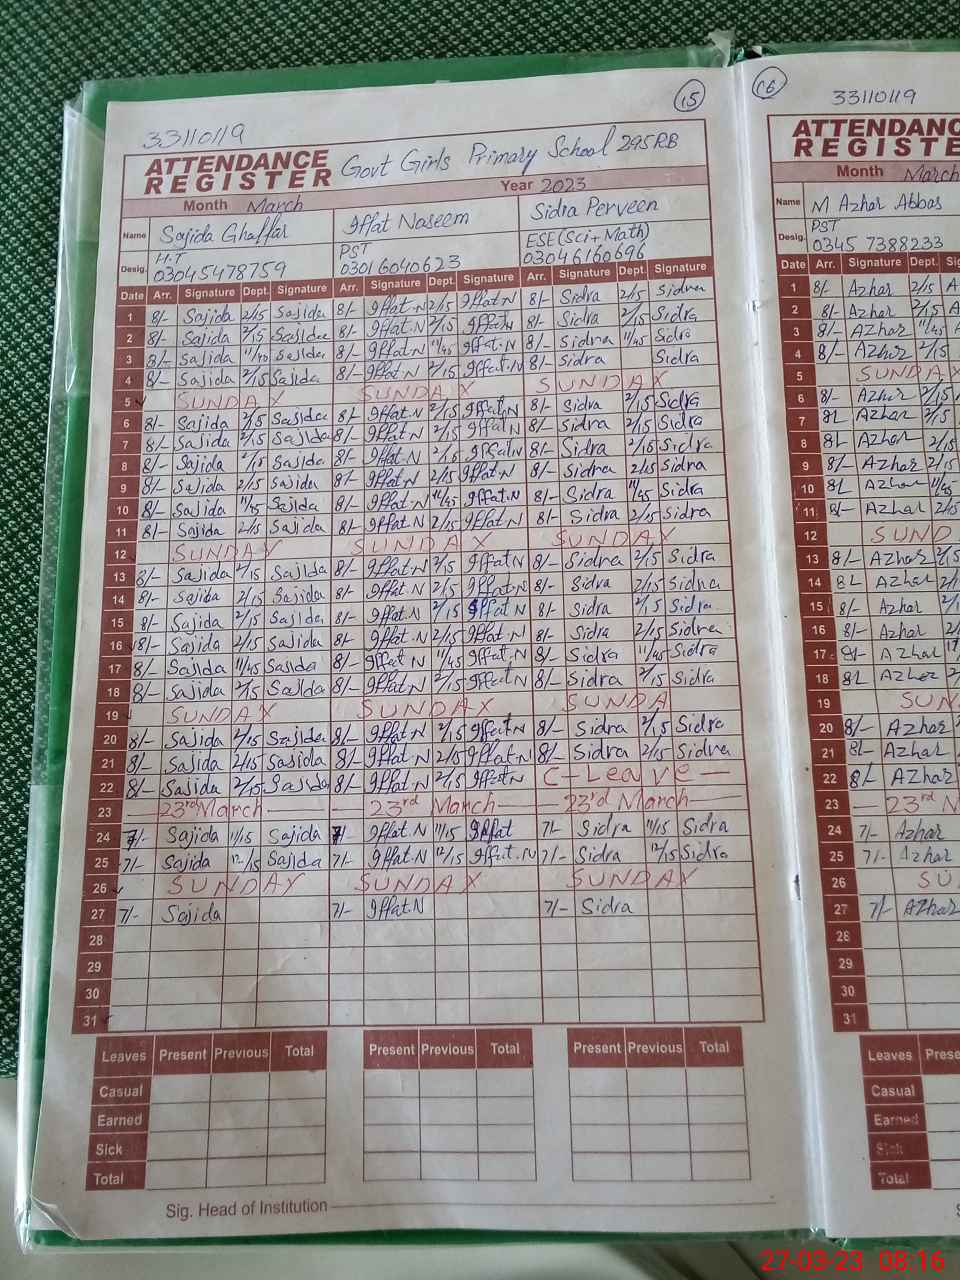 15
33110119
ATTENDANCE REGISTER Govt Girls Primary School 295RB
Month March Year 2023
Name Sajida Ghaffar Iffat Naseem Sidra Perveen
Desig. H.T PST ESE(Sci+Math)
03045478759 03016040623 03046160696
Date Arr. Signature Dept. Signature Arr. Signature Dept. Signature Arr. Signature Dept. Signature
1 8/- Sajida 2/15 Sajida 8/- Iffat.N 2/15 Iffat.N 8/- Sidra 2/15 Sidra
2 8/- Sajida 2/15 Sajida 8/- Iffat.N 2/15 Iffat.N 8/- Sidra 2/15 Sidra
3 8/- Sajida 11/45 Sajida 8/- Iffat.N 11/45 Iffat.N 8/- Sidra 11/45 Sidra
4 8/- Sajida 2/15 Sajida 8/- Iffat.N 2/15 Iffat.N 8/- Sidra Sidra
5 SUNDAY SUNDAY SUNDAY
6 8/- Sajida 2/15 Sajida 8/- Iffat.N 2/15 Iffat.N 8/- Sidra 2/15 Sidra
7 8/- Sajida 2/15 Sajida 8/- Iffat.N 2/15 Iffat.N 8/- Sidra 2/15 Sidra
8 8/- Sajida 2/15 Sajida 8/- Iffat.N 2/15 Iffat.N 8/- Sidra 2/15 Sidra
9 8/- Sajida 2/15 Sajida 8/- Iffat.N 2/15 Iffat.N 8/- Sidra 2/15 Sidra
10 8/- Sajida 11/45 Sajida 8/- Iffat.N 11/45 Iffat.N 8/- Sidra 11/45 Sidra
11 8/- Sajida 2/15 Sajida 8/- Iffat.N 2/15 Iffat.N 8/- Sidra 2/15 Sidra
12 SUNDAY SUNDAY SUNDAY
13 8/- Sajida 2/15 Sajida 8/- Iffat.N 2/15 Iffat.N 8/- Sidra 2/15 Sidra
14 8/- Sajida 2/15 Sajida 8/- Iffat.N 2/15 Iffat.N 8/- Sidra 2/15 Sidra
15 8/- Sajida 2/15 Sajida 8/- Iffat.N 2/15 Iffat.N 8/- Sidra 2/15 Sidra
16 8/- Sajida 2/15 Sajida 8/- Iffat.N 2/15 Iffat.N 8/- Sidra 2/15 Sidra
17 8/- Sajida 11/45 Sajida 8/- Iffat.N 11/45 Iffat.N 8/- Sidra 11/45 Sidra
18 8/- Sajida 2/15 Sajida 8/- Iffat.N 2/15 Iffat.N 8/- Sidra 2/15 Sidra
19 SUNDAY SUNDAY SUNDA
20 8/- Sajida 2/15 Sajida 8/- Iffat.N 2/15 Iffat.N 8/- Sidra 2/15 Sidra
21 8/- Sajida 2/15 Sajida 8/- Iffat.N 2/15 Iffat.N 8/- Sidra 2/15 Sidra
22 8/- Sajida 2/15 Sajida 8/- Iffat.N 2/15 Iffat.N C-Leave
23 23rd March 23rd March 23rd March
24 7/- Sajida 11/15 Sajida 7/- Iffat.N 11/15 Iffat 7/- Sidra 11/15 Sidra
25 7/- Sajida 12/15 Sajida 7/- Iffat.N 12/15 Iffat.N 7/- Sidra 12/15 Sidra
26 SUNDAY SUNDAY SUNDAY
27 7/- Sajida 7/- Iffat.N 7/- Sidra
28
29
30
31
Leaves Present Previous Total Present Previous Total Present Previous Total
Casual
Earned
Sick
Total
Sig. Head of Institution
16
33110119
ATTENDANC
REGISTE
Month March
Name M Azhar Abbas
Desig. PST
0345 7388233
Date Arr. Signature Dept. Sig
1 8/- Azhar 2/15 A
2 8/- Azhar 2/15 A
3 8/- Azhar 11/45
4 8/- Azhar 2/15
5 SUNDAY
6 8/- Azhar 2/15
7 8/- Azhar 2/15
8 8/- Azhar 2/15
9 8/- Azhar 2/15
10 8/- Azhar 11/45
11 8/- Azhar 2/15
12 SUND
13 8/- Azhar 2/15
14 8/- Azhar 2/15
15 8/- Azhar
16 8/- Azhar
17 8/- Azhar
18 8/- Azhar
19 SUN
20 8/- Azhar
21 8/- Azhar
22 8/- Azhar
23 23rd
24 7/- Azhar
25 7/- Azhar
26 SU
27 7/- Azhar
28
29
30
31
Leaves Prese
Casual
Earned
Sick
Total
27-03-23 08:16